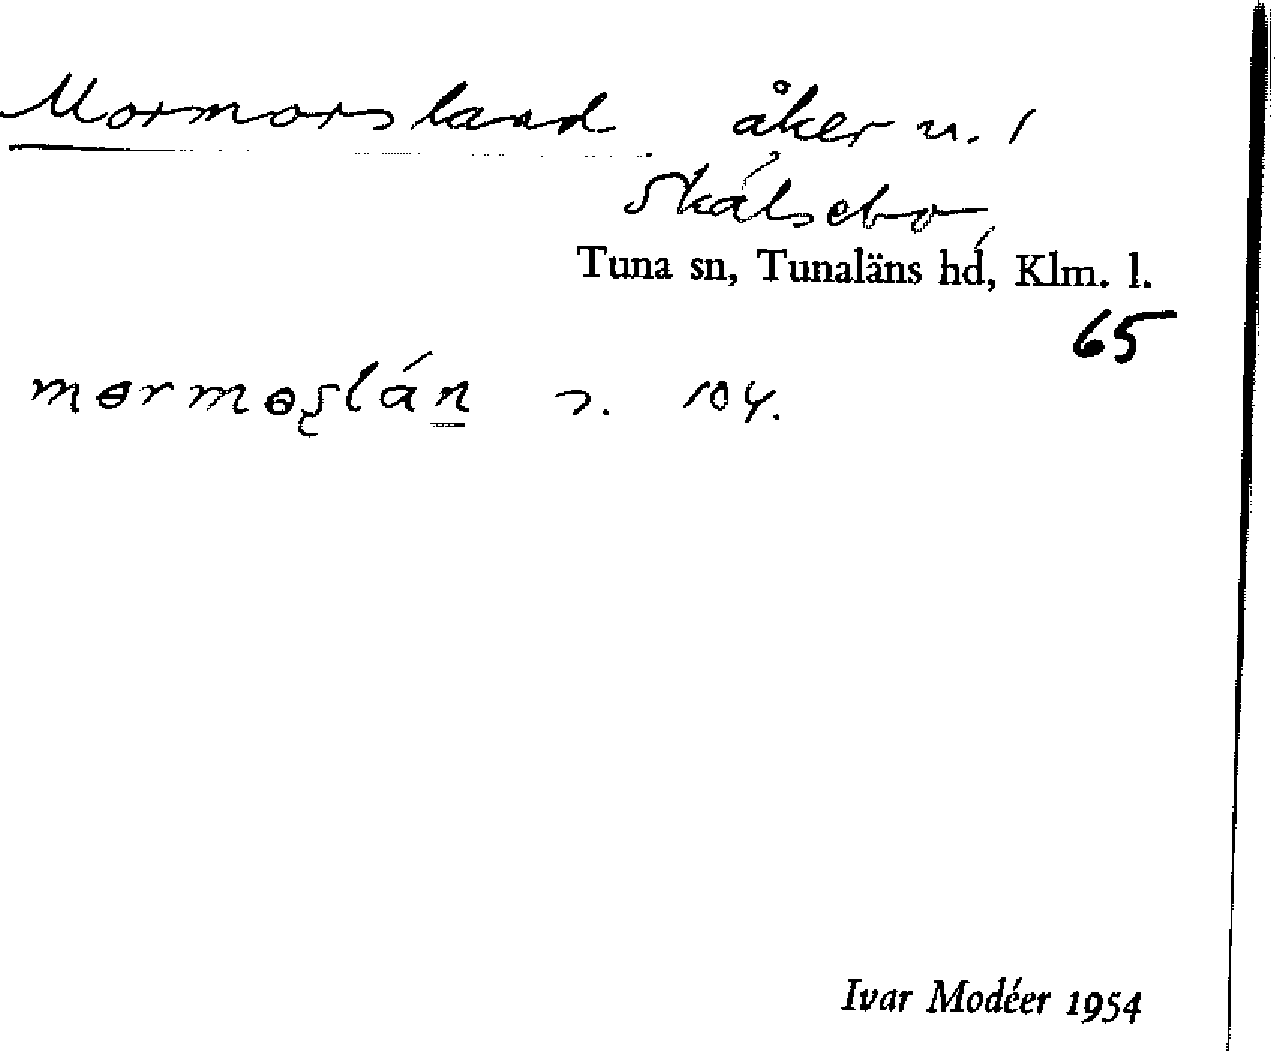 Mormorsland åker n. /
Skälsebo,
Tuna sn, Tunaläns hd, Klm. l.
65
mɵrmɵʂlán ɔ. 104.
Ivar Modéer 1954